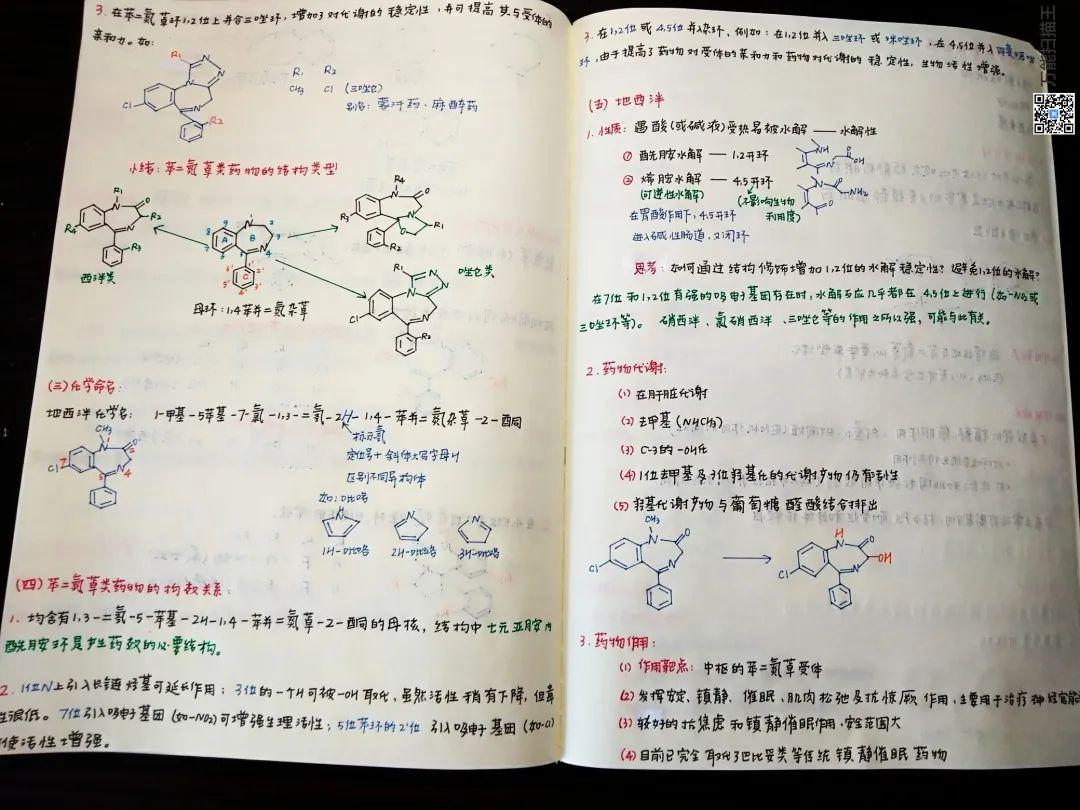 3. 在苯二氮䓬环1,2位上并合三唑环，增加了对代谢的稳定性，并可提高其与受体的
亲和力。如：
R₁
N
N
N
Cl
N
R₂
R₁ R₂
CH₃ Cl (三唑仑)
别名：蒙汗药、麻醉药
小结：苯二氮䓬类药物的结构类型
R₁
N
O
R₂
R₄
N
R₃
西泮类
9 1 2
8 A B 3
7 6 5 4
N
6' C 2'
5' 4' 3'
母环：1,4苯并二氮杂䓬
R₄
N
O
R₃
N
O
R₁
R₂
唑仑类
R₁
N
N
N
Cl
N
R₂
(三) 化学命名：
地西泮化学名： 1-甲基-5苯基-7-氯-1,3-二氢-2H-1,4-苯并二氮杂䓬-2-酮
标示氢
定位号+斜体大写字母H
区别不同异构体
如：吡咯
CH₃
N
O
Cl
7
5
4
N
1H-吡咯 2H-吡咯 3H-吡咯
(四) 苯二氮䓬类药物的构效关系：
1. 均含有1,3-二氢-5-苯基-2H-1,4-苯并二氮䓬-2-酮的母核，结构中七元亚胺内
酰胺环是产生药效的必要结构。
2. 1位N上引入长链烃基可延长作用；3位的一个H可被-OH取代，虽然活性稍有下降，但毒
性很低。7位引入吸电子基团（如-NO₂）可增强生理活性；5位苯环的2'位引入吸电子基团（如-Cl）
使活性增强。
3. 在1,2位或4,5位并入杂环，例如：在1,2位并入三唑环或咪唑环，在4,5位并入四氢噁唑
环，由于提高了药物对受体的亲和力和药物对代谢的稳定性，生物活性增强。
万能扫描王
(五) 地西泮
1. 性质：遇酸(或碱液)受热易被水解 —— 水解性
① 酰胺水解 —— 1,2开环
② 烯胺水解 —— 4,5开环
(可逆性水解) (不影响生物
利用度)
在胃酸作用下，4,5开环
进入碱性肠道，又闭环
思考：如何通过结构修饰增加1,2位的水解稳定性？避免1,2位的水解？
在7位和1,2位有强的吸电子基团存在时，水解反应几乎都在4,5位上进行（如-NO₂或
三唑环等）。 硝西泮、氯硝西泮、三唑仑等的作用之所以强，可能与此有关。
2. 药物代谢：
(1) 在肝脏代谢
(2) 去甲基(NHCH₃)
(3) C-3的-OH化
(4) 1位去甲基及3位羟基化的代谢产物仍有活性
(5) 羟基代谢产物与葡萄糖醛酸结合排出
CH₃
N
O
Cl
N
H
N
O
OH
Cl
N
3. 药物作用：
(1) 作用靶点：中枢的苯二氮䓬受体
(2) 发挥安定、镇静、催眠、肌肉松弛及抗惊厥作用，主要用于治疗神经官能
(3) 较好的抗焦虑和镇静催眠作用，安全范围大
(4) 目前已完全取代了巴比妥类等传统镇静催眠药物